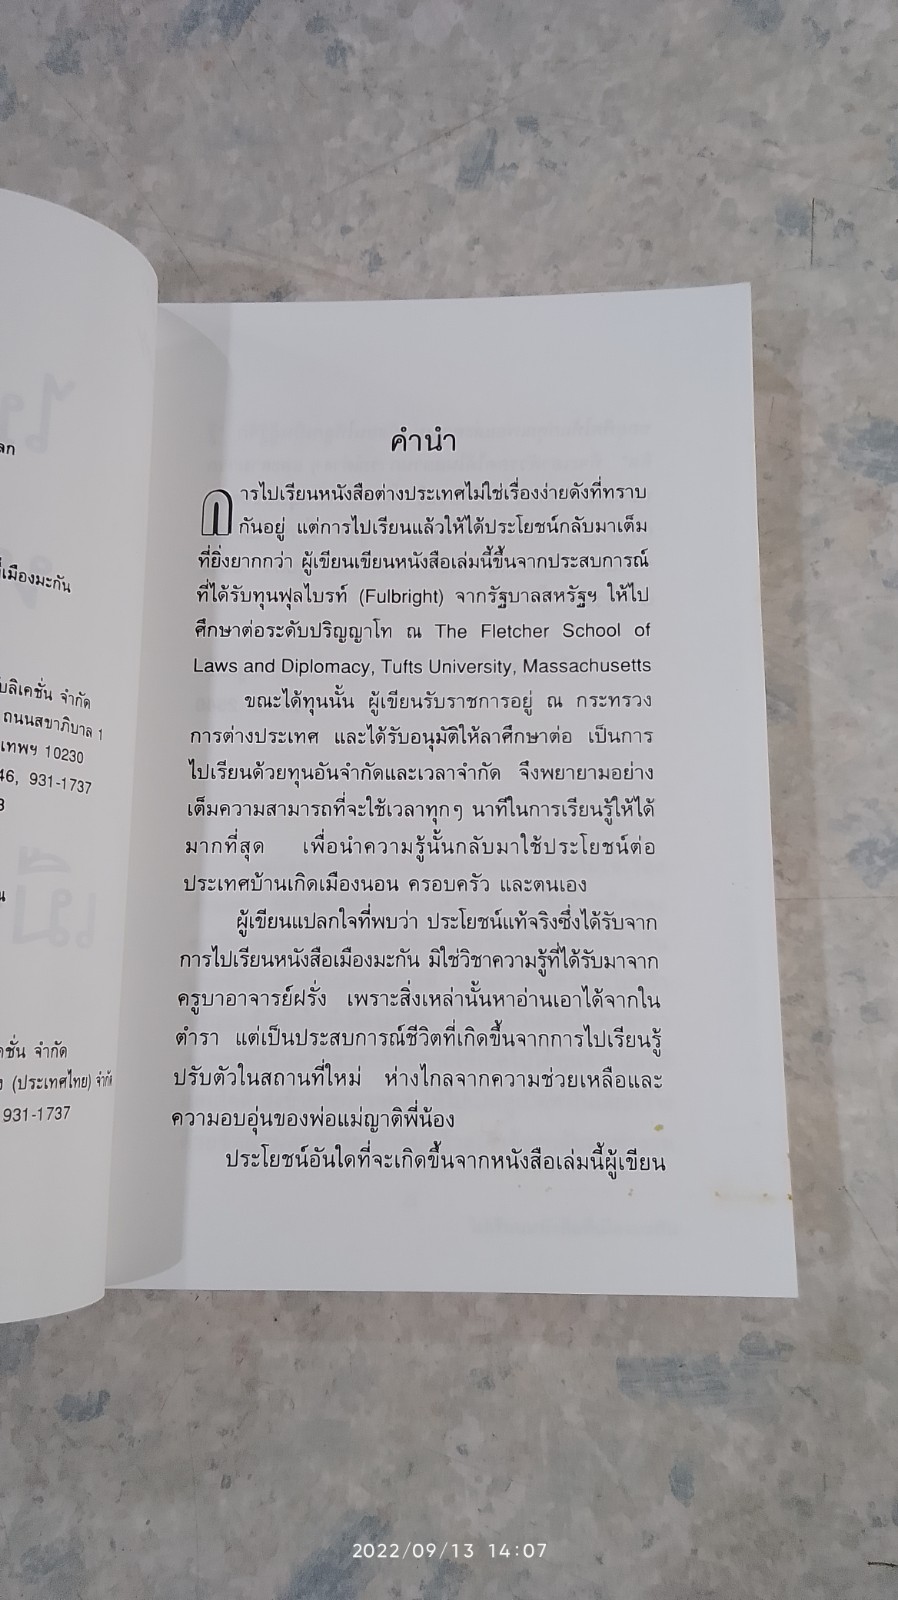 ลก
เมืองมะกัน
บลิเคชั่น จำกัด
ถนนสุขาภิบาล 1
เทพฯ 10230
46, 931-1737
3
น
ดชั่น จำกัด
(ประเทศไทย) จำกัด
931-1737
คำนำ
การไปเรียนหนังสือต่างประเทศไม่ใช่เรื่องง่ายดังที่ทราบ
กันอยู่ แต่การไปเรียนแล้วให้ได้ประโยชน์กลับมาเต็ม
ที่ยิ่งยากกว่า ผู้เขียนเขียนหนังสือเล่มนี้ขึ้นจากประสบการณ์
ที่ได้รับทุนฟุลไบรท์ (Fulbright) จากรัฐบาลสหรัฐฯ ให้ไป
ศึกษาต่อระดับปริญญาโท ณ The Fletcher School of
Laws and Diplomacy, Tufts University, Massachusetts
ขณะได้ทุนนั้น ผู้เขียนรับราชการอยู่ ณ กระทรวง
การต่างประเทศ และได้รับอนุมัติให้ลาศึกษาต่อ เป็นการ
ไปเรียนด้วยทุนอันจำกัดและเวลาจำกัด จึงพยายามอย่าง
เต็มความสามารถที่จะใช้เวลาทุกๆ นาทีในการเรียนรู้ให้ได้
มากที่สุด เพื่อนำความรู้นั้นกลับมาใช้ประโยชน์ต่อ
ประเทศบ้านเกิดเมืองนอน ครอบครัว และตนเอง
ผู้เขียนแปลกใจที่พบว่า ประโยชน์แท้จริงซึ่งได้รับจาก
การไปเรียนหนังสือเมืองมะกัน มิใช่วิชาความรู้ที่ได้รับมาจาก
ครูบาอาจารย์ฝรั่ง เพราะสิ่งเหล่านั้นหาอ่านเอาได้จากใน
ตำรา แต่เป็นประสบการณ์ชีวิตที่เกิดขึ้นจากการไปเรียนรู้
ปรับตัวในสถานที่ใหม่ ห่างไกลจากความช่วยเหลือและ
ความอบอุ่นของพ่อแม่ญาติพี่น้อง
ประโยชน์อันใดที่จะเกิดขึ้นจากหนังสือเล่มนี้ผู้เขียน
2022/09/13 14:07